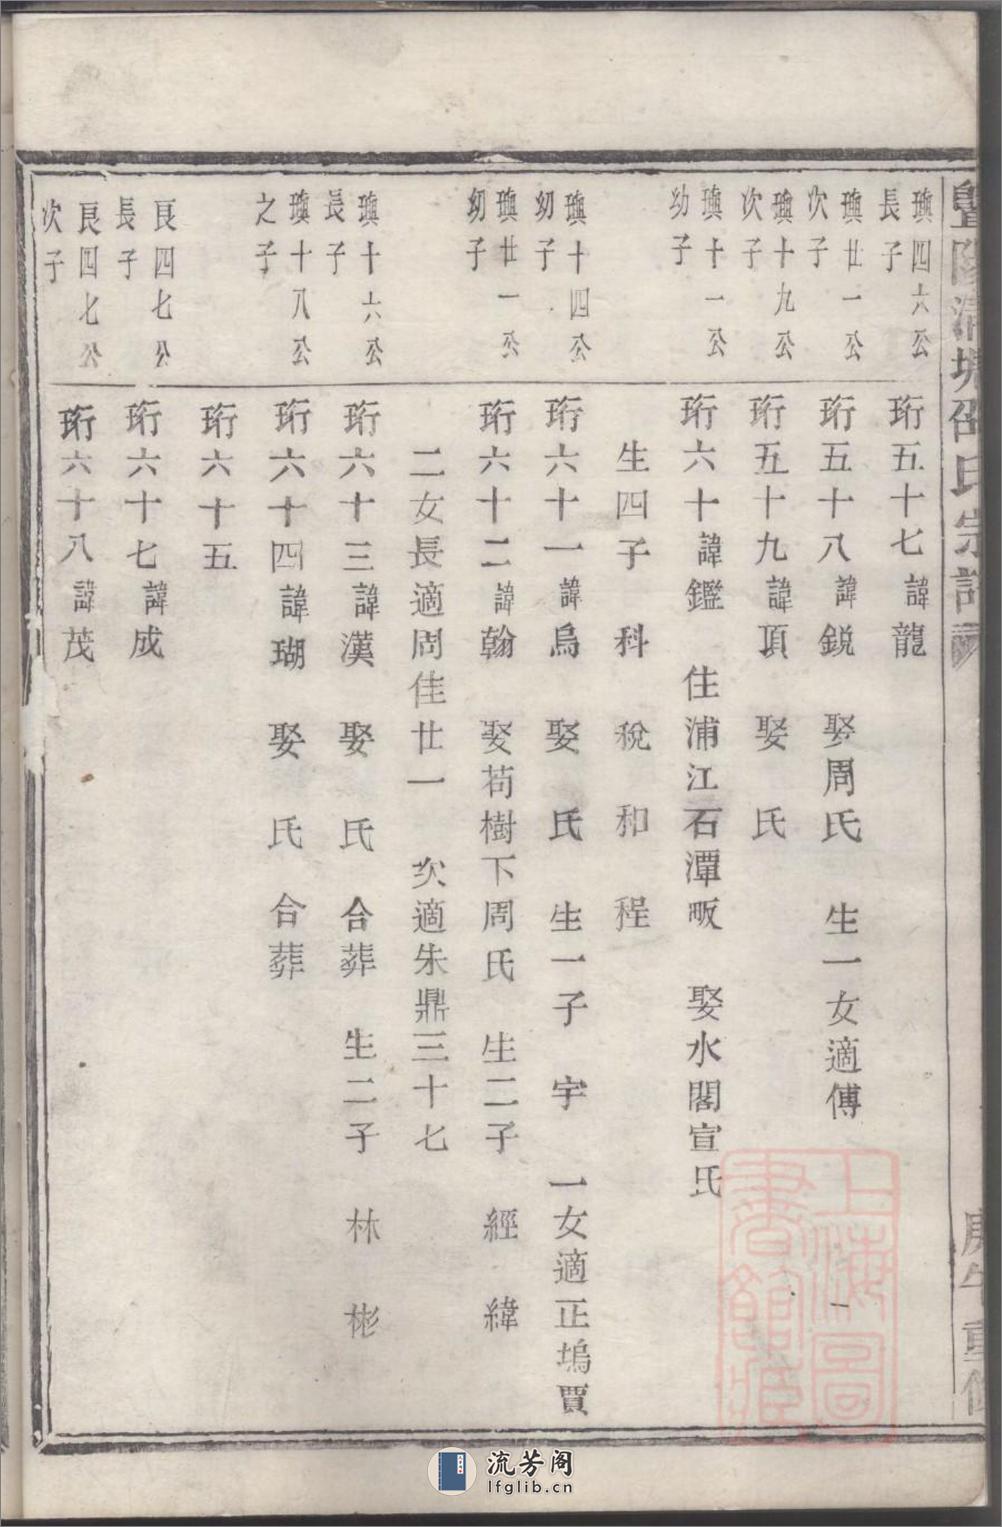 暨陽清塘邵氏宗譜
庚午重修
璵四六公
長子
珩五十七諱龍
璵廿一公
次子
珩五十八諱鋭 娶周氏 生一女適傅
璵十九公
次子
珩五十九諱頂 娶 氏
璵十一公
幼子
珩六十諱鑑 住浦江石潭畈 娶水閣宣氏
生四子 科 稅 和 程
璵十四公
幼子
珩六十一諱烏 娶 氏 生一子 宇 一女適正塢賈
璵廿一公
幼子
珩六十二諱翰 娶苟樹下周氏 生二子 經 緯
二女長適周佳廿一 次適朱鼎三十七
璵十六公
長子
珩六十三諱漢 娶 氏 合葬 生二子 林 彬
璵十八公
之子
珩六十四諱瑚 娶 氏 合葬
珩六十五
良四七公
長子
珩六十七諱成
良四七公
次子
珩六十八諱茂
上海圖書館藏
流芳阁
lfglib.cn